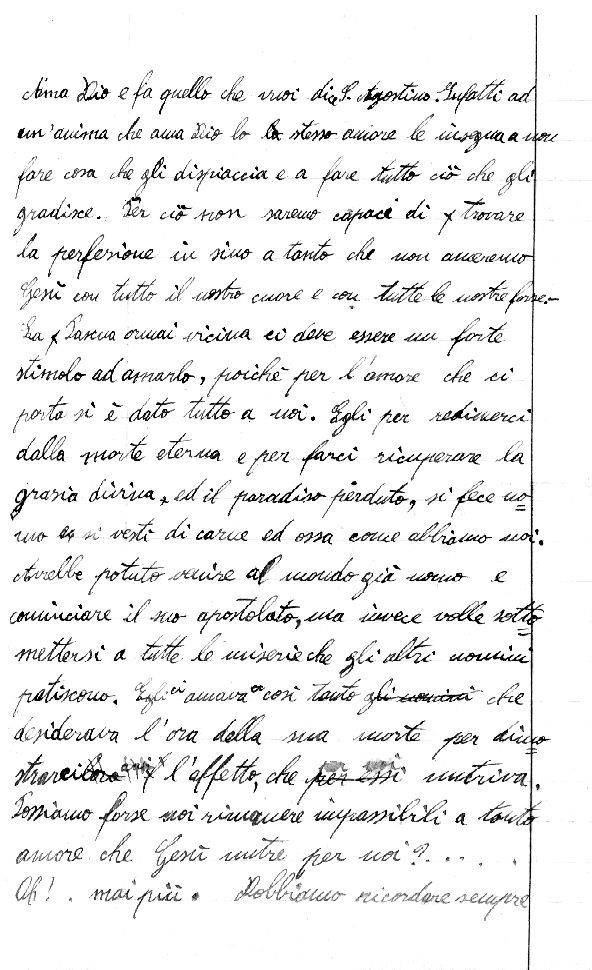 Ama Dio e fa quello che vuoi dice S. Agostino. Infatti ad
un'anima che ama Dio lo lo stesso amore le insegna a non
fare cosa che gli dispiaccia e a fare tutto ciò che gli
gradisce. Per ciò non saremo capaci di trovare
la perfezione in sino a tanto che non ameremo
Gesù con tutto il nostro cuore e con tutte le nostre forze.-
La Pasqua ormai vicina ci deve essere un forte
stimolo ad amarlo, poichè per l'amore che ci
porta si è dato tutto a noi. Egli per redimerci
dalla morte eterna e per farci ricuperare la
grazia divina, ed il paradiso perduto, si fece uo=
mo e si vestì di carne ed ossa come abbiamo noi.
Avrebbe potuto venire al mondo già uomo e
cominciare il suo apostolato, ma invece volle sotto=
mettersi a tutte le miserie che gli altri uomini
patiscono. Egli ci amava così tanto gli uomini che
desiderava l'ora della sua morte per dimo=
strarci loro l'affetto, che per essi per noi nutriva.
Possiamo forse noi rimanere impassibili a tanto
amore che Gesù nutre per noi?. . . .
Ah! . mai più. Dobbiamo ricordare sempre